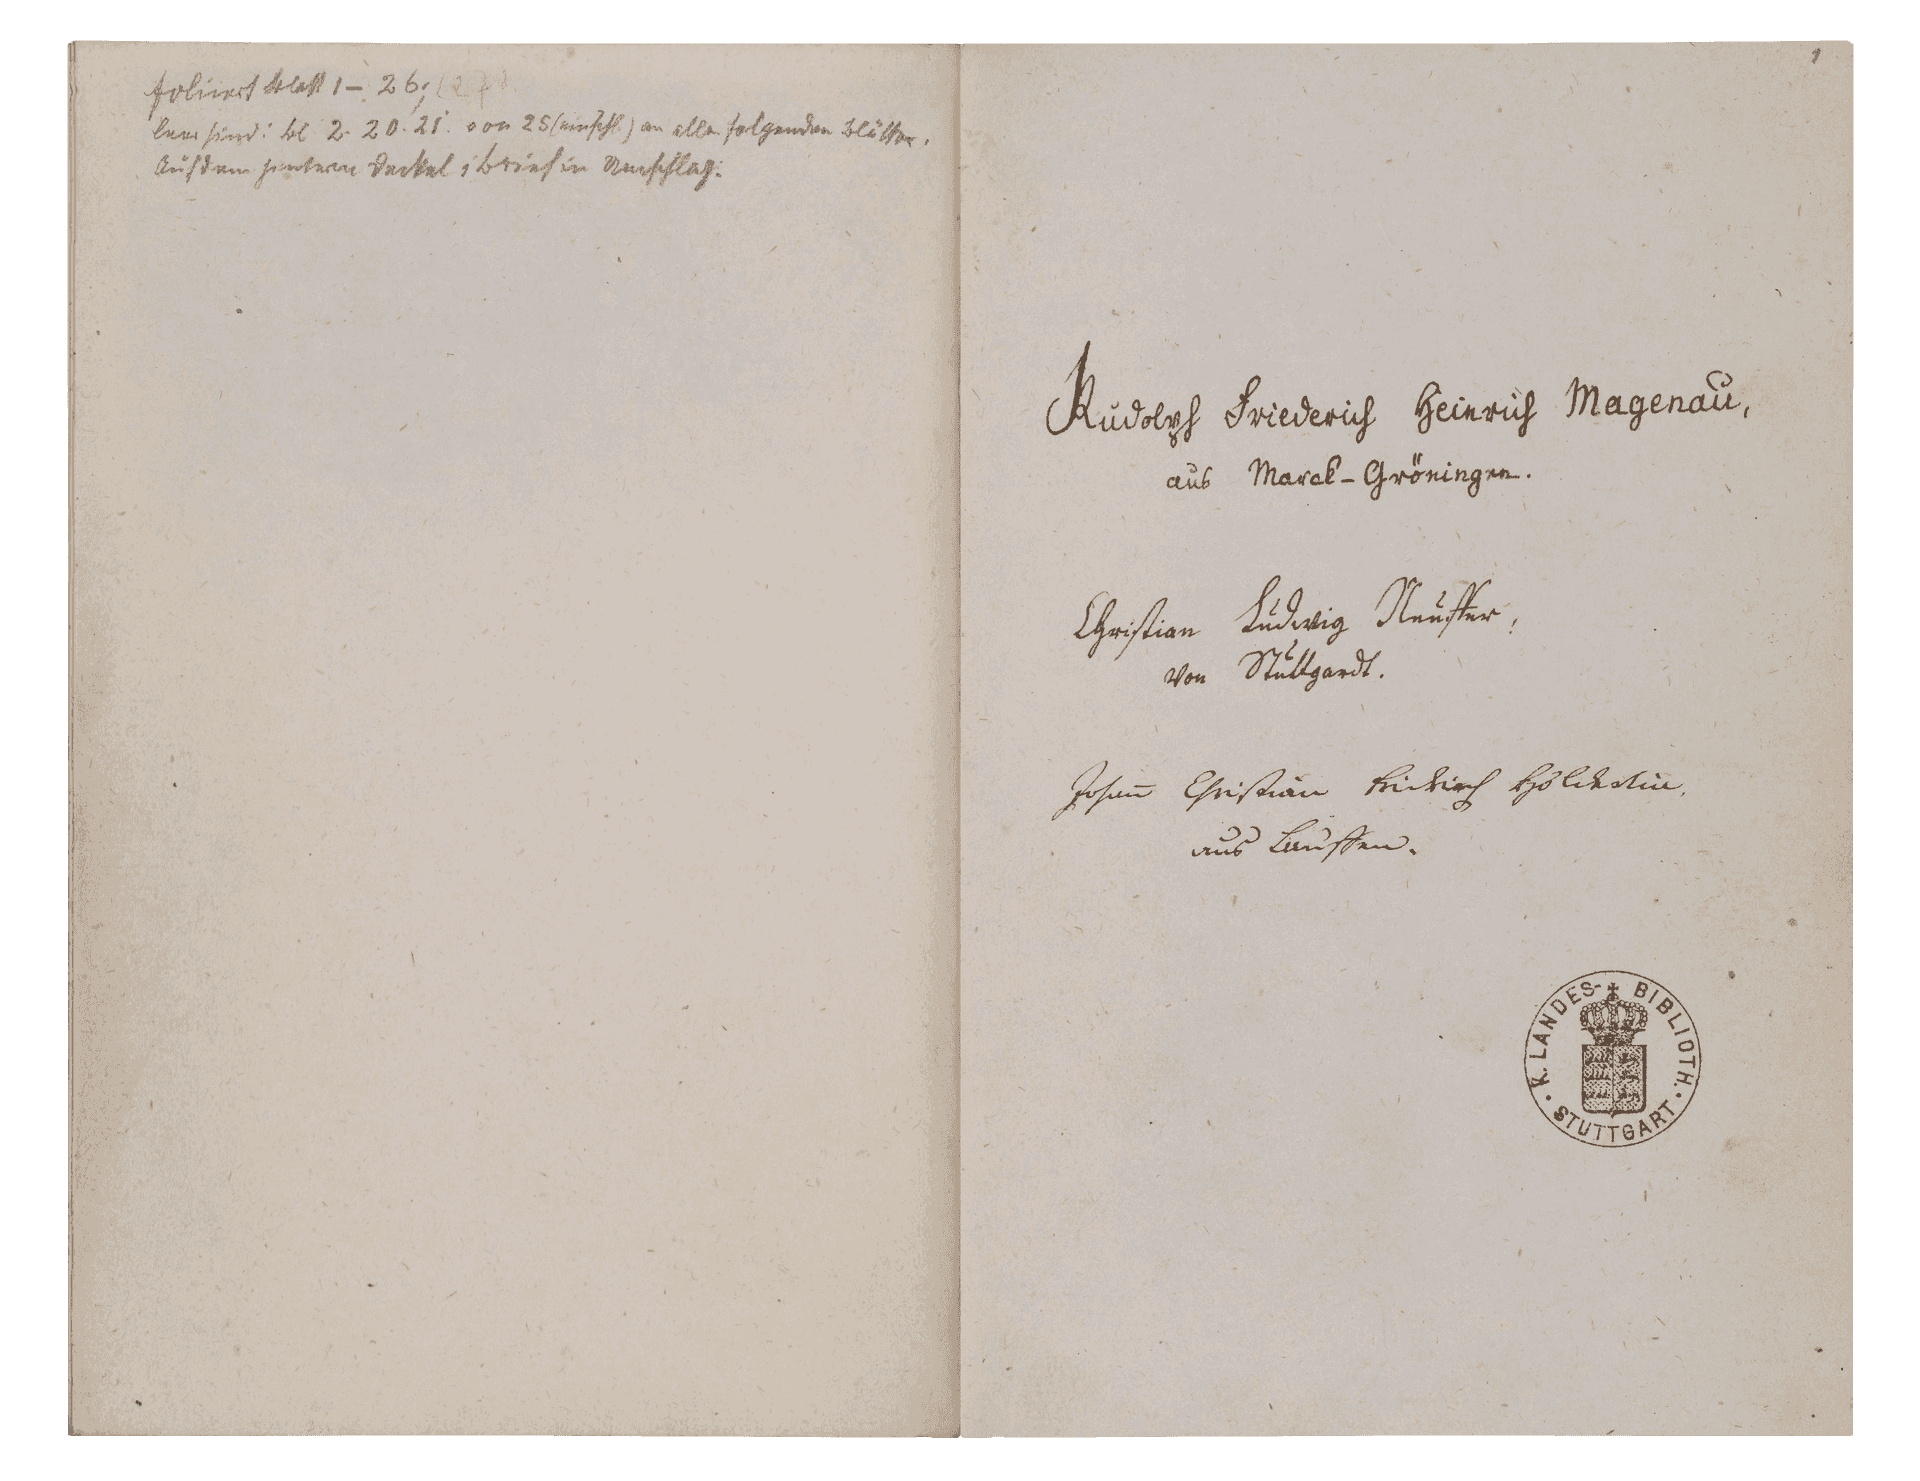 foliiert Blatt 1 – 26; (27)
leer sind: Bl 2. 20. 21. von 25 (einschl.) an alle folgenden Blätter.
Auf dem hintern Deckel 1 Brief in Umschlag.
1
Rudolph Friederich Heinrich Magenau,
aus Marck-Gröningen.
Christian Ludwig Neuffer,
von Stuttgardt.
Johañ Christian Fridrich Hölderlin.
aus Lauffen.
K. LANDES-BIBLIOTH. STUTTGART